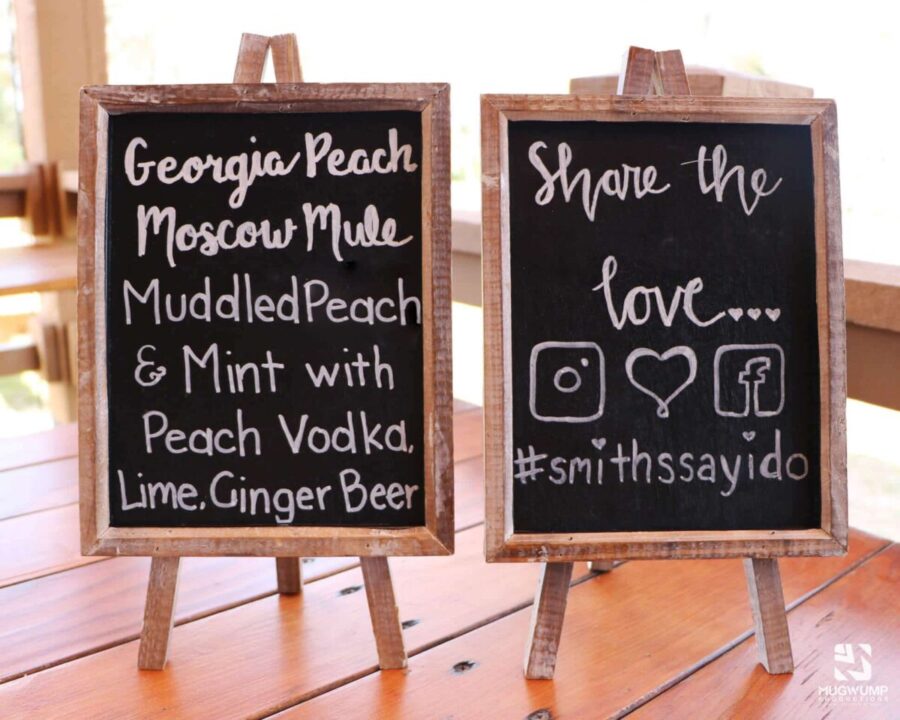 Georgia Peach
Moscow Mule
Muddled Peach
& Mint with
Peach Vodka,
Lime, Ginger Beer
Share the
love...
#smithssayido
MUGWUMP
PRODUCTIONS